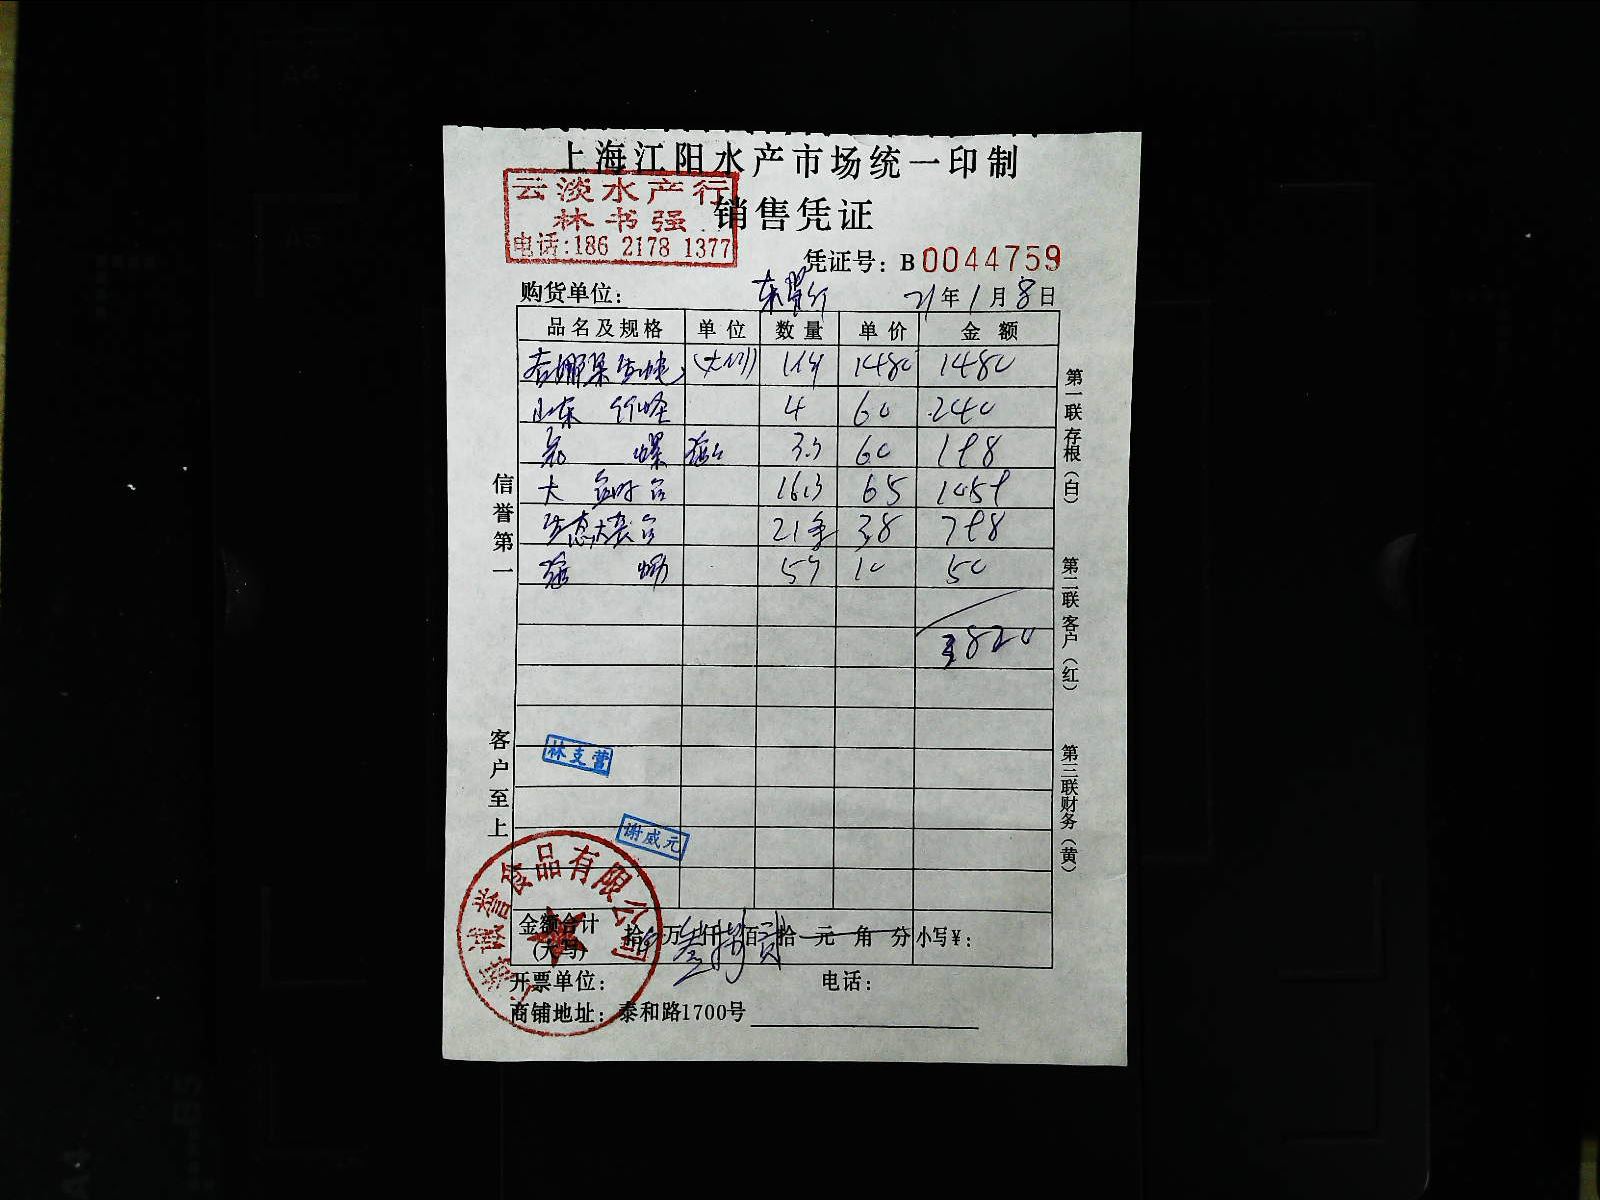 上海江阳水产市场统一印制
云淡水产行
林书强
电话:186 2178 1377
销售凭证
凭证号: B 0044759
购货单位: 21年1月8日
品名及规格 单位 数量 单价 金额
1480 1480
山东 4 60 240
螺 3.3 60 198
大 16.3 65 1059
生态大 21 38 798
5 10 50
3820
信誉第一
客户至上
第一联 存根(白)
第二联 客户(红)
第三联 财务(黄)
林支营
谢威元
上海诚誉食品有限公司
金额合计(大写) 拾 万 仟 百 拾 元 角 分 小写¥:
开票单位: 电话:
商铺地址: 泰和路1700号